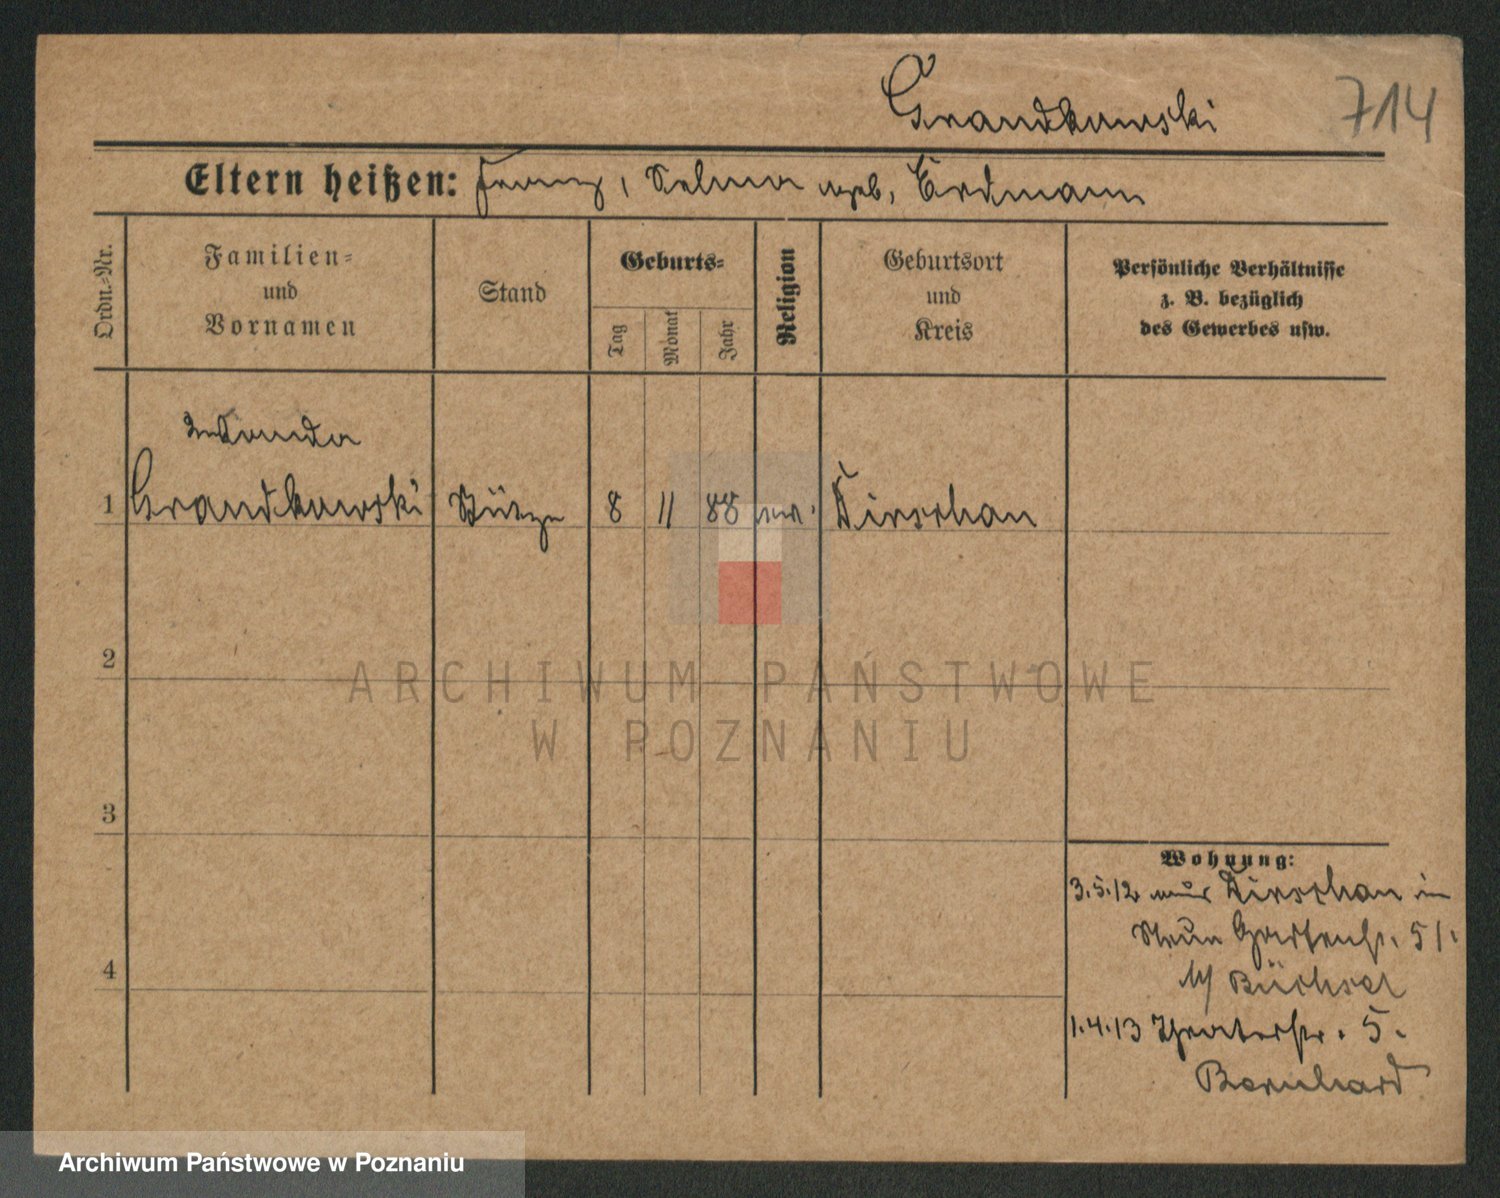 Grandkowski
714
Eltern heißen: Franz, Selma geb. Erdmann
Ordn.-Nr.
Familien-
und
Vornamen
Stand
Geburts-
Tag
Monat
Jahr
Religion
Geburtsort
und
Kreis
Persönliche Verhältnisse
z. B. bezüglich
des Gewerbes usw.
Wanda
1 Grandkowski Stütze 8 11 88 Dirschau
2
3
4
ARCHIWUM PAŃSTWOWE
W POZNANIU
Wohnung:
3.5.12 aus Dirschau in
Neue Gartenstr. 51.
Büchsel
1.4.13 Theaterstr. 5.
Bernhard
Archiwum Państwowe w Poznaniu